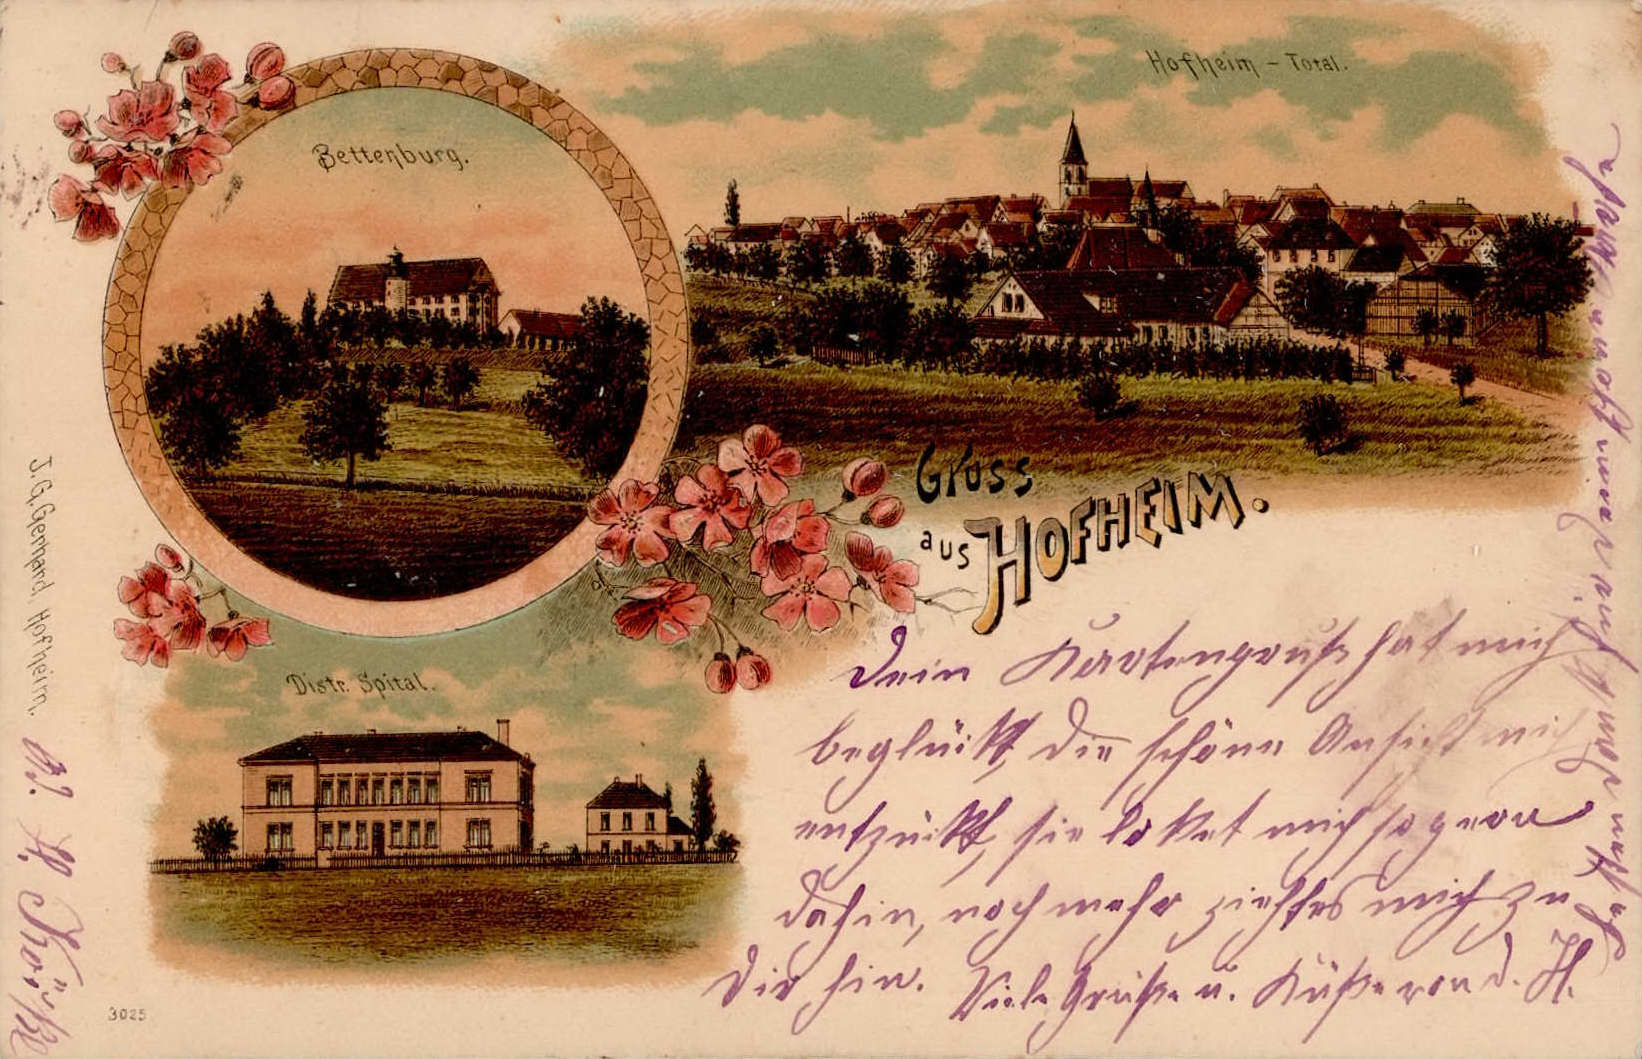 Hofheim – Total.
Bettenburg.
Gruss
aus HOFHEIM.
Distr. Spital.
J. G. Gerhard, Hofheim.
3025
Dein Kartengruß hat mich
beglückt, die schöne Ansicht mich
entzückt, sie locket mich so gern
dahin, noch mehr zieht es mich zu
Dir hin. Viele Grüße u. Küße von d. H.